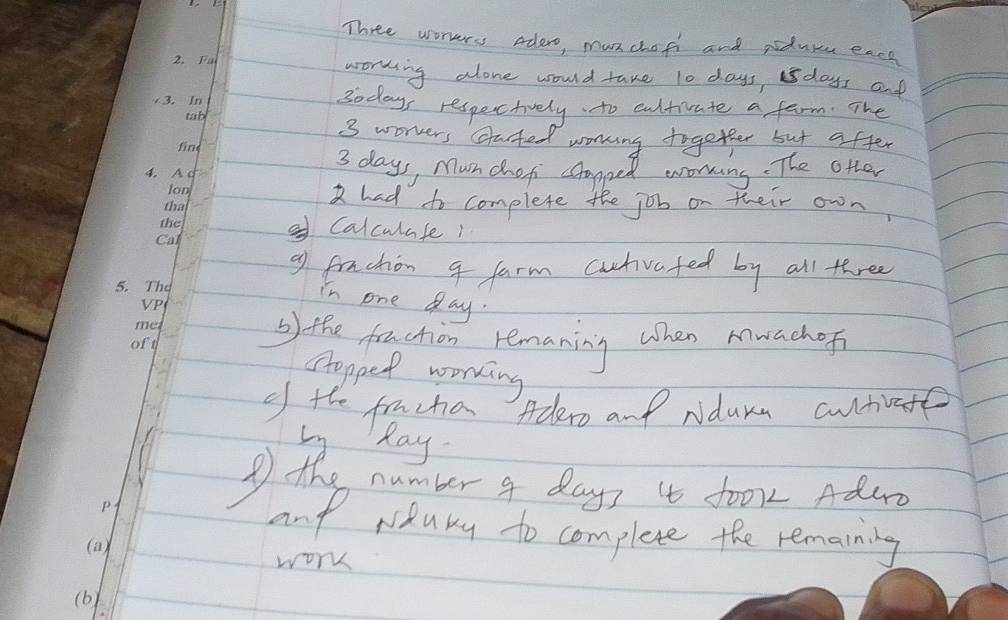 Three workers Adero, mwachofi and Nduku each
2. Fa
working alone would take 10 days, 15 days and
3. In
30 days respectively. to cultivate a farm. The
tab
3 workers started working together but after
fin
3 days, Mwachofi stopped working. The other
4. A
lon
2 had to complete the job on their own,
tha
the
Calculate;
Cal
a) fraction of farm cultivated by all three
5. The
in one day.
VP
me
b) the fraction remaning when Mwachofi
of t
stopped working
c) the fraction Adero and Nduku cultivate
in day.
d) the number of days it took Adero
P
and Nduku to complete the remaining
(a)
work
(b)